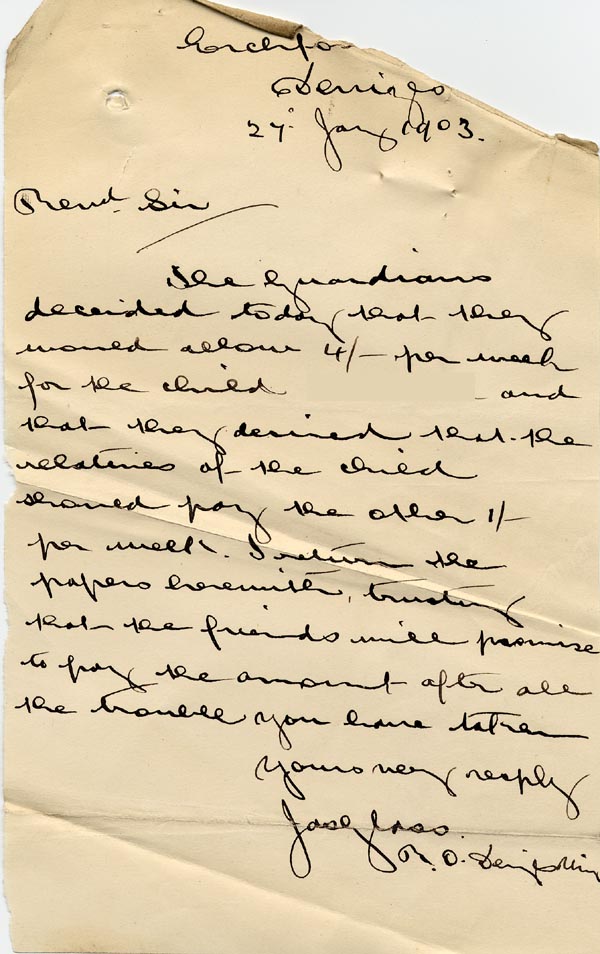 27 Jany 1903.
Revd. Sir
The Guardians
decided today that they
would allow 4/- per week
for the child and
that they desired that the
relatives of the child
should pay the other 1/-
per week. I return the
papers herewith, trusting
that the friends will promise
to pay the amount after all
the trouble you have taken
Yours very resply
R. O.